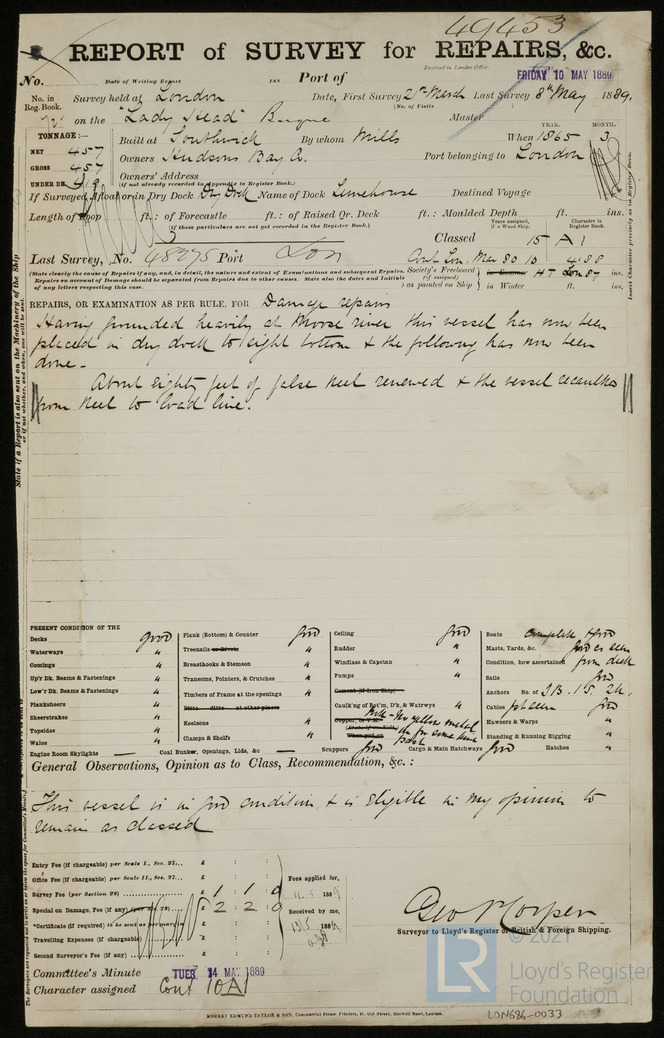 49453
REPORT of SURVEY for REPAIRS, &c.
Received in London Office
No. Date of Writing Report 188 Port of FRIDAY 10 MAY 1889
No. in Reg. Book. Survey held at London Date, First Survey 21st March Last Survey 8th May 1889.
(No. of Visits
on the "Lady Head" Barque Master
TONNAGE:—
NET 457
GROSS 457
UNDER DK. 419
Built at Southwick By whom Mills When 1865 3
YEAR. MONTH.
Owners Hudsons Bay Co. Port belonging to London
Owners' Address
(if not already recorded in Appendix to Register Book.)
If Surveyed Afloat or in Dry Dock Dry Dock Name of Dock Limehouse Destined Voyage
Length of Poop ft.: of Forecastle ft.: of Raised Qr. Deck ft.: Moulded Depth ft. ins.
(if these particulars are not yet recorded in the Register Book.)
Years assigned, if a Wood Ship. Character in Register Book.
Classed 15 A 1
Last Survey, No. 48075 Port Lon Cont Lon. Mar 80 10 4.88
(State clearly the cause of Repairs if any, and, in detail, the nature and extent of Examinations and subsequent Repairs.
Repairs on account of Damage should be separated from Repairs due to other causes. State also the dates and Initials
of any letters respecting this case.
Society's Freeboard (if assigned) as painted on Ship
in Summer HT Lon 87 ins.
in Winter ft. ins.
Insert Character precisely as in Register Book.
State if a Report is also sent on the Machinery of the Ship
REPAIRS, OR EXAMINATION AS PER RULE, FOR Damage repairs
Having grounded heavily at Moose river this vessel has now been
placed in dry dock to sight bottom & the following has now been
done.
About eighty feet of false keel renewed & the vessel recaulked
from keel to load line.
PRESENT CONDITION OF THE
Decks good
Waterways "
Comings "
Up'r Dk. Beams & Fastenings "
Low'r Dk. Beams & Fastenings "
Planksheers "
Sheerstrakes "
Topsides "
Wales "
Engine Room Skylights — Coal Bunker, Openings, Lids, &c —
Plank (Bottom) & Counter good
Treenails or Rivets "
Breasthooks & Stemson "
Transoms, Pointers, & Crutches "
Timbers of Frame at the openings "
Ditto ditto at other places
Keelsons "
Clamps & Shelfs "
Scuppers good
Ceiling good
Rudder "
Windlass & Capstan "
Pumps "
Cement (if Iron Ship)
Caulk'ng of Bot'm, Dk, & Watrwys "
Cargo & Main Hatchways good
Boats complete & good
Masts, Yards, &c. good as seen
Condition, how ascertained from deck
Sails good
Anchors No. of 3 B. 1 S. 2 K.
Cables good
Hawsers & Warps "
Standing & Running Rigging "
Hatches "
General Observations, Opinion as to Class, Recommendation, &c.:
This vessel is in good condition & is eligible in my opinion to
remain as classed
Entry Fee (if chargeable) per Scale I., Sec. 27... £ : :
Office Fee (if chargeable) per Scale II., Sec. 27... £ : :
Survey Fee (per Section 28) £ 1 : 1 : 0
Special on Damage, Fee (if any) £ 2 : 2 : 0
*Certificate (if required) to be sent as per margin £ : :
Travelling Expenses (if chargeable) £ : :
Second Surveyor's Fee (if any) £ : :
Fees applied for,
11.5 1889
Received by me,
13/5 1889
Surveyor to Lloyd's Register of British & Foreign Shipping.
Committee's Minute TUES 14 MAY 1889
Character assigned Cont 10A1
ROBERT EDMUND TAYLOR & SON, Commercial Steam Printers, 19, Old Street, Goswell Road, London.
© 2021
LR
Lloyd's Register
Foundation
LON686-0033